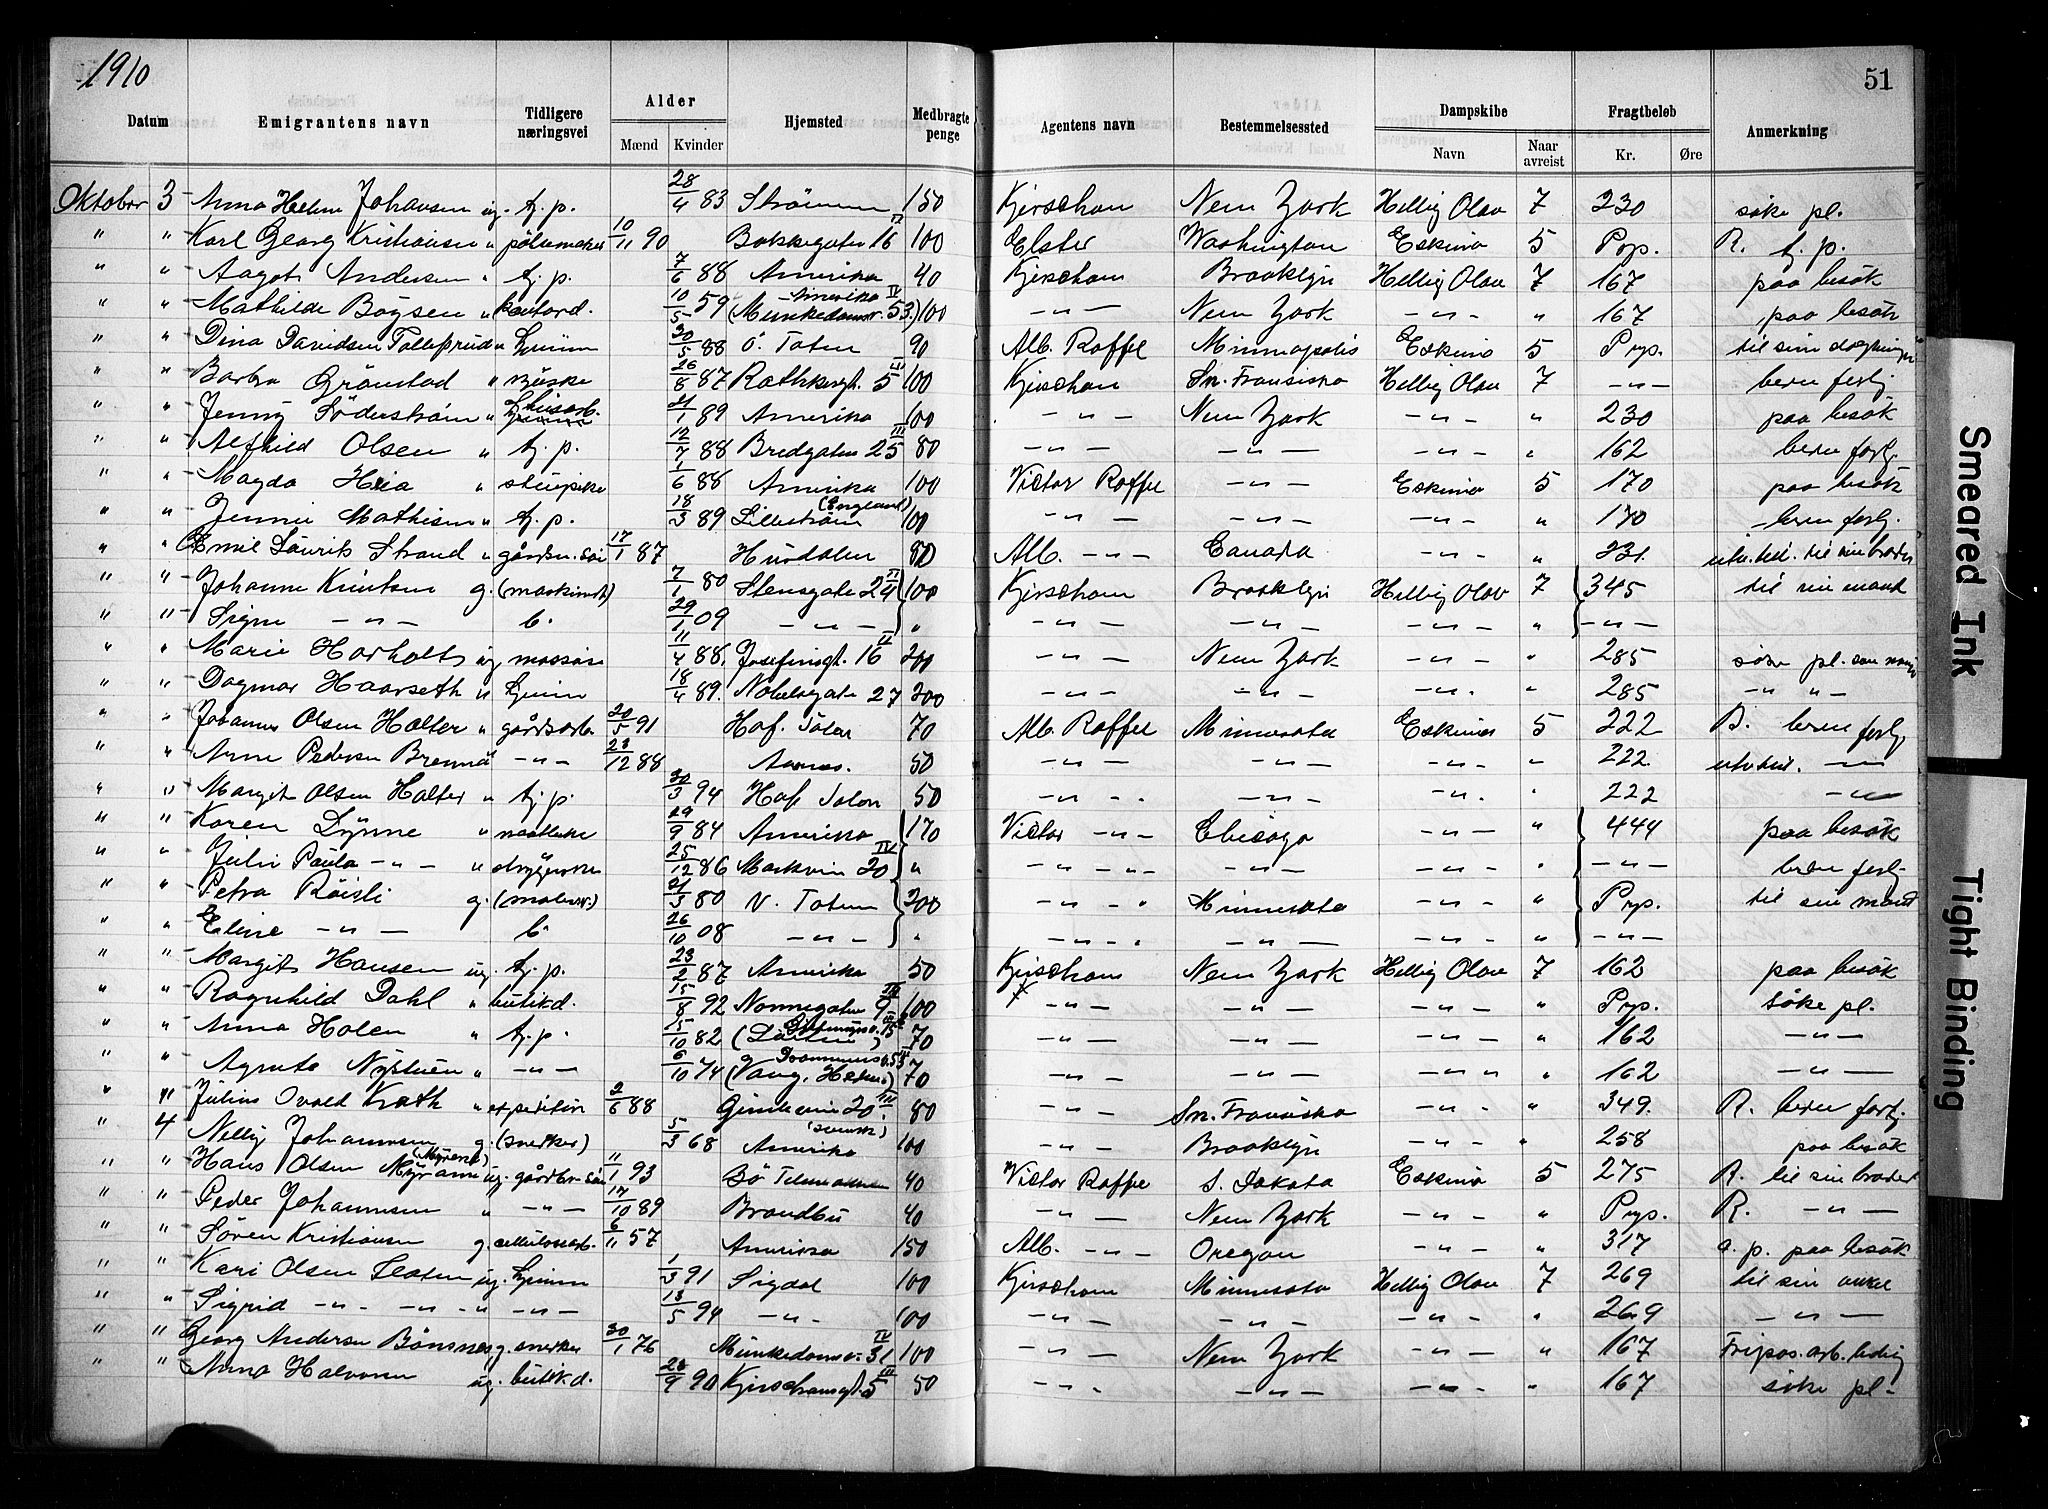 1910
51
Datum Emigrantens navn Tidligere næringsvei Alder Mænd Kvinder Hjemsted Medbragte penge Agentens navn Bestemmelsessted Dampskibe Navn Naar avreist Fragtbeløb Kr. Øre Anmerkning
Oktober 3 Anna Helene Johansen ug. tj. p. 28/4 83 Strömmen 150 Kjerschow New York Hellig Olav 7 230 søke pl.
" " Karl Georg Kristiansen " pölsemaker 10/11 90 Bakkegaten 16 II 100 Elster Washington Eskimo 5 Prp. R. tj. p.
" " Aagot Andersen " tj. p. 7/6 88 Amerika 40 Kjerschow Brooklyn Hellig Olav 7 167 paa besök
" " Mathilde Böysen " 10/5 59 Amerika (Munkedamsv. 53 IV) 100 — " — New York — " — " 167 paa besök
" " Dina Davidsen Tollefsrud " hjemme 30/5 88 Ö. Toten 90 Alb. Raffel Minneapolis Eskimo 5 Prp. til sin
" " Barbra Grönstad " 26/8 87 Rathkesgt. 5 100 Kjerschow Sn. Fransisko Hellig Olav 7 — " — bern forh.
" " Jenny Söderström " husarb. 21/1 89 Amerika 100 — " — New York — " — " 230 paa besök
" " Alfhild Olsen " tj. p. 12/7 88 Bredgaten 25 III 80 — " — — " — — " — " 162 bern forh.
" " Magda Hea " stuepike 1/6 88 Amerika 100 Victor Raffel — " — Eskimo 5 170 paa besök
" " Jennie Mathisen " tj. p. 18/3 89 Lilleström (England) 100 — " — — " — — " — " 170 bern forh.
" " Emil Laurits Strand " gårdbr. sön 17/1 87 Hurdalen 80 Alb. — " — Canada — " — " 231 til sin broder
" " Johanne Knutsen g. (maskinist) 7/1 80 Stensgate 24 II 100 Kjerschow Brooklyn Hellig Olav 7 345 til sin mand
" " Signe — " — b. 29/1 09 — " — " — " — — " — — " — " — " —
" " Marie Harholt ug. massöse 11/4 88 Josefinegt. 16 II 200 — " — New York — " — " 285 söke pl. som
" " Dagmar Haarseth " hjemme 18/4 89 Nobelsgate 27 200 — " — — " — — " — " 285 — " " —
" " Johannes Olsen Halter " gårdsarb. 20/5 91 Hof. Solør 70 Alb. Raffel Minnesota Eskimo 5 222 B. bern forh.
" " Arne Pedersen Brennå — " — 23/12 88 Aasnes. 50 — " — — " — — " — " 222 — " —
" " Margit Olsen Halter " tj. p. 30/3 94 Hof Solör 50 — " — — " — — " — " 222 — " —
" " Karen Lynne " 29/9 84 Amerika 170 Victor — " — Chicago — " — " 444 paa besök
" " Julie Paula — " — " 25/12 86 Markvein 20 IV " — " — — " — — " — " — " — bern forh.
" " Petra Röisli g. (malersv.) 21/3 80 V. Toten 200 — " — Minnesota — " — " Prp. til sin mand
" " Eline — " — b. 26/10 08 — " — " — " — — " — — " — " — " —
" " Margit Hansen ug. tj. p. 23/2 87 Amerika 50 Kjerschow New York Hellig Olav 7 162 paa besök
" " Ragnhild Dahl " butikd. 15/8 92 Nornegaten 9 100 — " — — " — — " — " Prp. söke pl.
" " Anna Holen " tj. p. 5/10 82 15 70 — " — — " — — " — " 162 — " —
" " Agnete Nystuen " — " — 6/10 74 Drammensv. 53 (Vang, Hedm.) 70 — " — — " — — " " " 162 — " —
" " Julius Osvald Krath " expeditör 2/6 88 Gimlevein 20 III 80 — " — Sn. Fransisko — " — " 349 R. bern forh.
" 4 Nelly Johannesen g. (snekker) 5/3 68 Amerika (svensk) 100 — " — Brooklyn — " — " 258 paa besök
" " Hans Olsen Myrann (Myrene) ug. gårdbr. sön 11/1 93 Bö Telemarken 40 Victor Raffel S. Dakota Eskimo 5 275 R. til sin broder
" " Peder Johannesen " — " — 17/10 89 Brandbu 40 — " — New York — " — " Prp. R. — " —
" " Sören Kristiansen g. cellulosearb. 6/11 57 Amerika 150 Alb. — " — Oregon — " — " 317 a. p. paa besök
" " Kari Olsen Slaten ug. hjemme 1/3 91 Sigdal 100 Kjerschow Minnesota Hellig Olav 7 269 til sin onkel
" " Sigrid — " — — " — " — " — 13/5 94 — " — 100 — " — — " — — " — " 269 — " —
" " Georg Andersen Bönsnes g. snekker 30/1 76 Munkedamsv. 31 IV 100 — " — New York — " — " 167 Fripas. arb. ledig
" " Anna Halvorsen ug. butikd. 28/9 90 Kjerschowsgt. 5 III 50 — " — — " — — " — " 167 söke pl.
Smeared Ink
Tight Binding